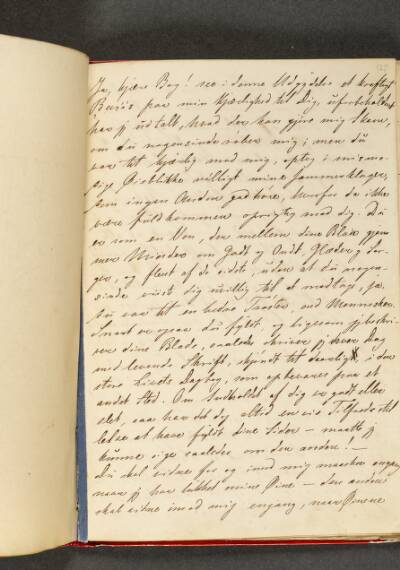 Ja, kjære Bog! see i denne Udgydelse et kraftigt
Beviis paa min Kjærlighed til Dig, uforbeholdent
har jeg udtalt, hvad der kan gjøre mig Skam,
om du nogensinde røber mig; men du
var tit kjærlig mod mig, optog i mismo-
dige Øieblikke villigt mine Jammerklager,
som ingen Anden gad høre, hvorfor da ikke
være fuldkommen oprigtig mod dig. Du
er som en Ven, der mellem dine Blade gjem-
mer Minder om Godt og Ondt, Glæder og Sor-
ger, og fleest af de sidste, uden at du nogen-
sinde viiste dig uvillig til at modtage, ja,
du var tit en bedre Trøster, end Mennesker.
Snart er ogsaa du fyldt, og ligesom jeg beskri-
ver dine Blade, saaledes skriver jeg hver Dag
med levende Skrift, skjøndt tit daarligt, i den
store Livets Dagbog, som opbevares paa et
andet Sted. Om Indholdet af dig er godt eller
slet, saa har det dog altid en vis Tilfredsstil-
lelse at have fyldt dine Sider — maatte jeg
kunne sige saaledes om den anden! —
Du skal vidne for og imod mig maaskee engang
naar jeg har lukket mine Øine — den anden
skal vidne imod mig engang, naar Øinene